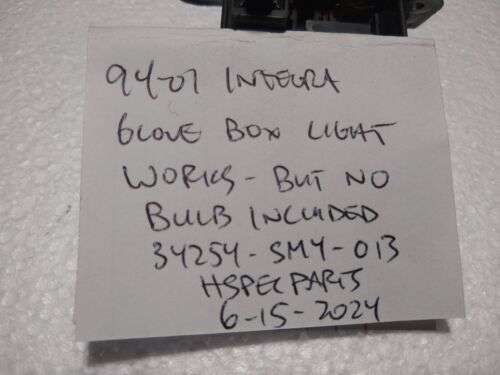 94-01 INTEGRA
GLOVE BOX LIGHT
WORKS - BUT NO
BULB INCLUDED
34254-SM4-013
HSPECPARTS
6-15-2024